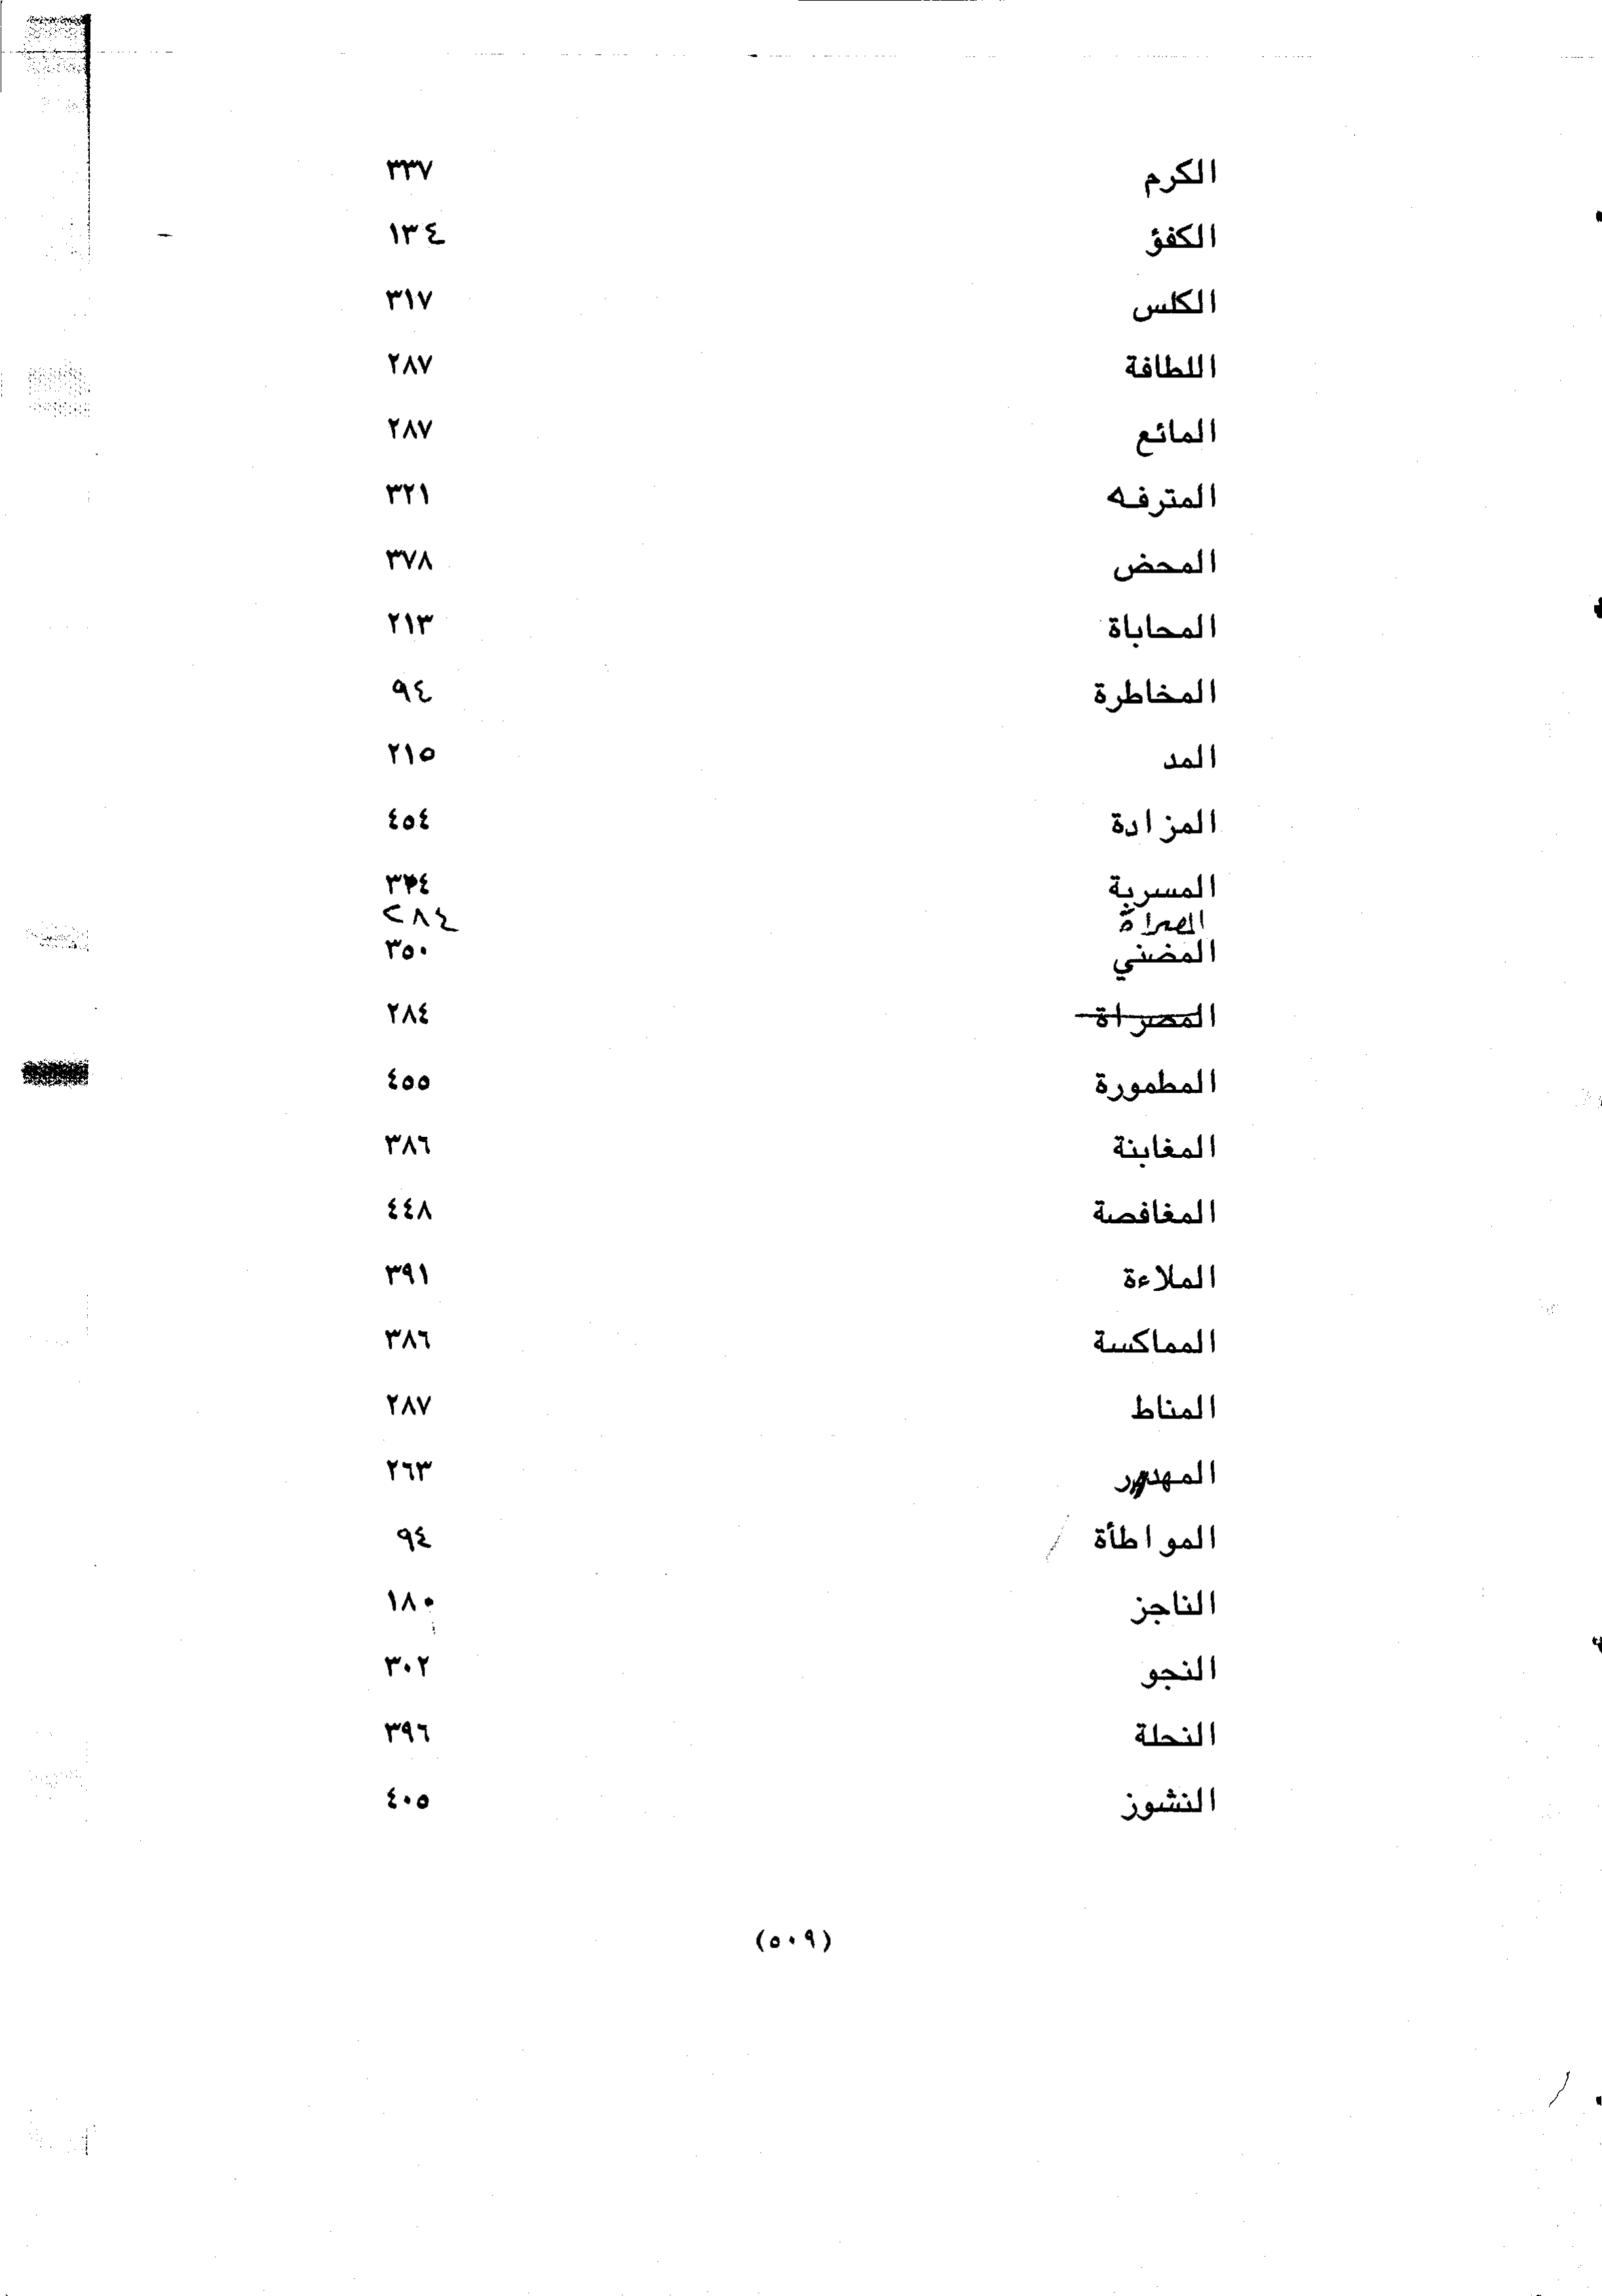 الكرم ٣٣٧
الكفؤ ١٣٤
الكلس ٣١٧
اللطافة ٢٨٧
المائع ٢٨٧
المترفه ٣٢١
المحض ٣٧٨
المحاباة ٢١٣
المخاطرة ٩٤
المد ٢١٥
المزادة ٤٥٤
المسربة
المصراة ٢٨٤
المضني ٣٥٠
المصراة ٢٨٤
المطمورة ٤٥٥
المغابنة ٣٨٦
المغافصة ٤٤٨
الملاءة ٣٩١
المماكسة ٣٨٦
المناط ٢٨٧
٢٦٣
المواطأة ٩٤
الناجز ١٨٠
النجو ٣٠٢
النحلة ٣٩٦
النشوز ٤٠٥
(٥٠٩)